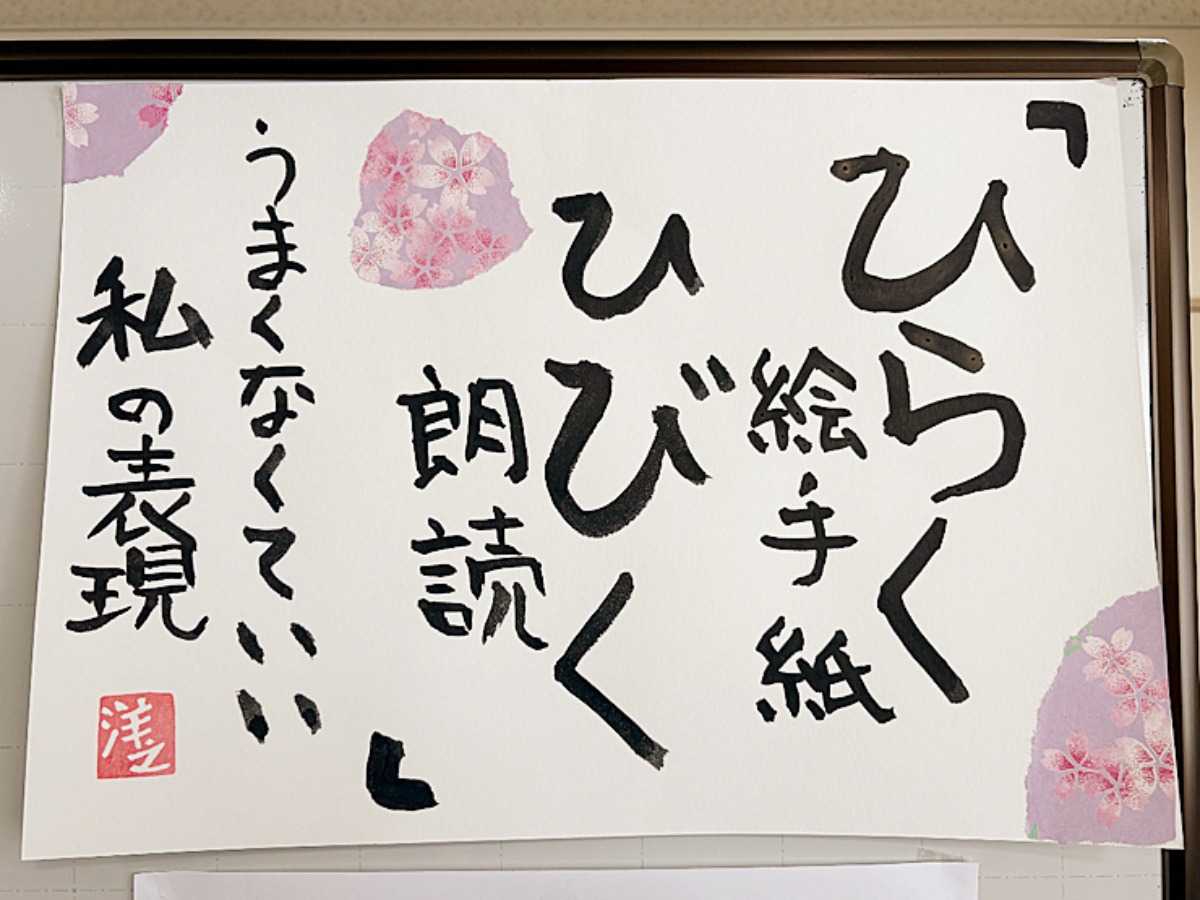 「ひらく
絵手紙
ひびく
朗読」
うまくなくていい
私の表現
洋之